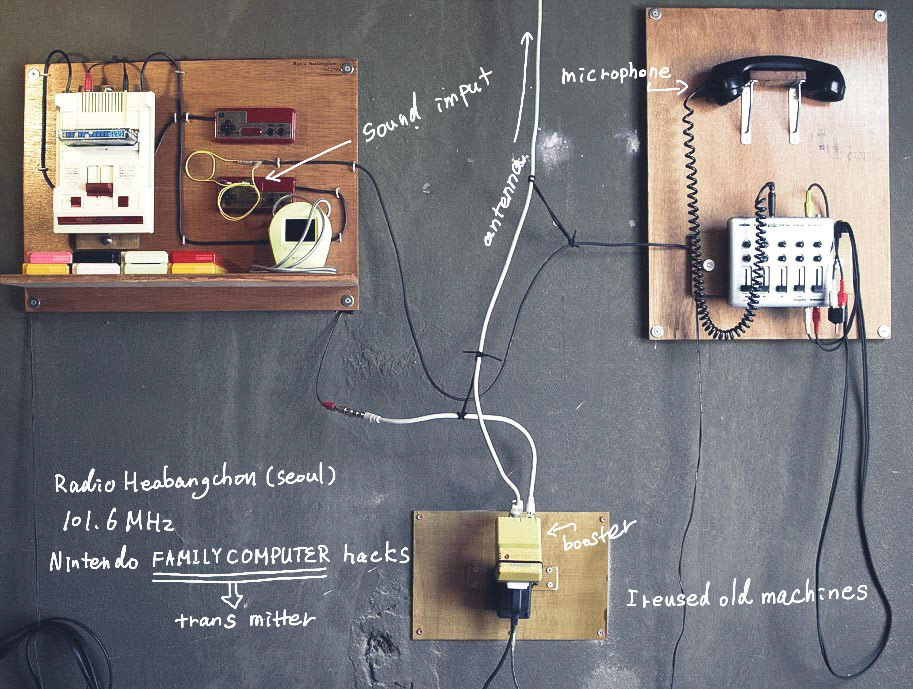 sound imput
antenna
microphone
Radio Heabangchon (seoul)
101.6 MHz
Nintendo FAMILY COMPUTER hacks
trans mitter
booster
I reused old machines